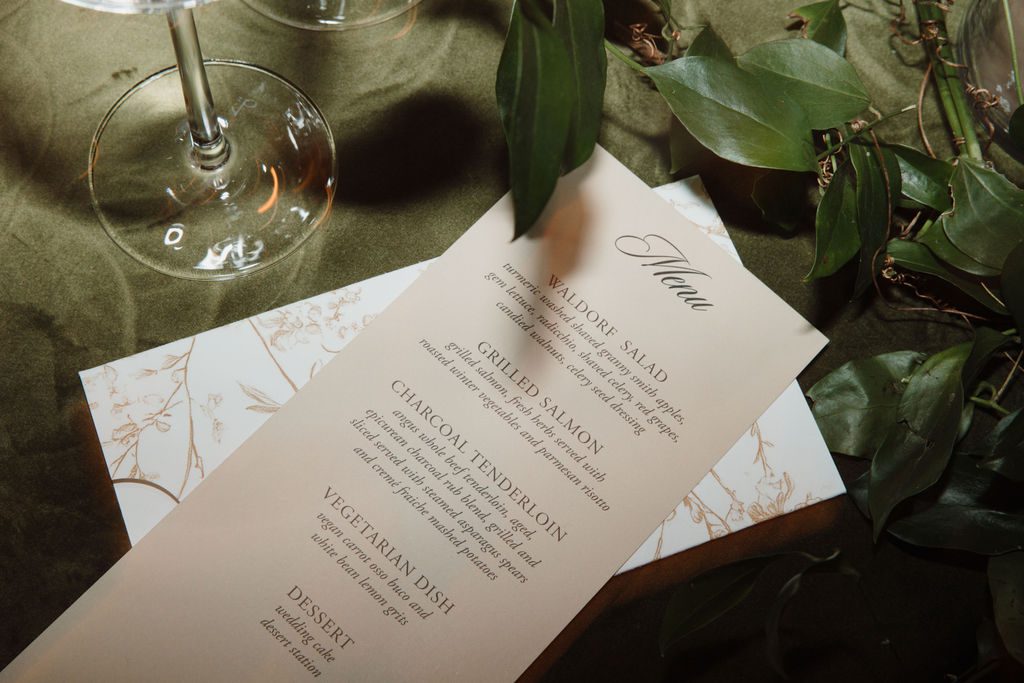 Menu
WALDORF SALAD
turmeric washed shaved granny smith apples,
gem lettuce, radicchio, shaved celery, red grapes,
candied walnuts, celery seed dressing
GRILLED SALMON
grilled salmon, fresh herbs served with
roasted winter vegetables and parmesan risotto
CHARCOAL TENDERLOIN
angus whole beef tenderloin, aged,
epicurean charcoal rub blend, grilled and
sliced served with steamed asparagus spears
and cremé fraiche mashed potatoes
VEGETARIAN DISH
vegan carrot osso buco and
white bean lemon grits
DESSERT
wedding cake
dessert station